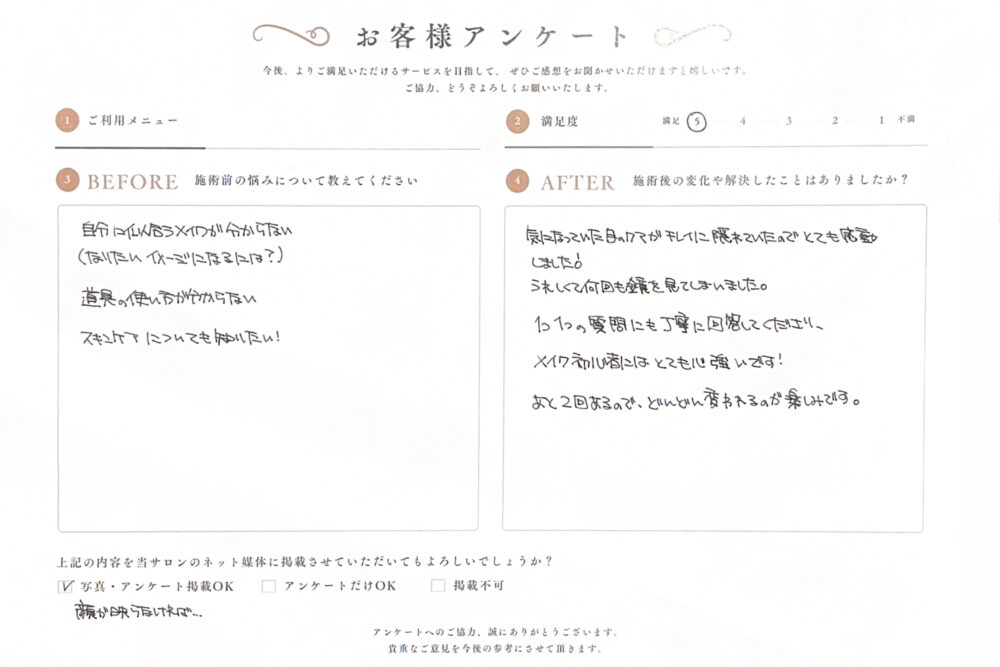 お客様アンケート
今後、よりご満足いただけるサービスを目指して、ぜひご感想をお聞かせいただけますと嬉しいです。
ご協力、どうぞよろしくお願いいたします。
1 ご利用メニュー
2 満足度 満足 5 4 3 2 1 不満
3 BEFORE 施術前の悩みについて教えてください
自分に似合うメイクが分からない
(なりたいイメージになるには?)
道具の使い方が分からない
スキンケアについても知りたい!
4 AFTER 施術後の変化や解決したことはありましたか?
気になっていた目のクマがキレイに隠れていたのでとても感動
しました!
うれしくて何回も鏡を見てしまいました。
1つ1つの質問にも丁寧に回答してくださり、
メイク初心者にはとても心強いです!
あと2回あるので、どんどん変われるのが楽しみです。
上記の内容を当サロンのネット媒体に掲載させていただいてもよろしいでしょうか?
写真・アンケート掲載OK アンケートだけOK 掲載不可
顔が映らなければ…
アンケートへのご協力、誠にありがとうございます。
貴重なご意見を今後の参考にさせて頂きます。